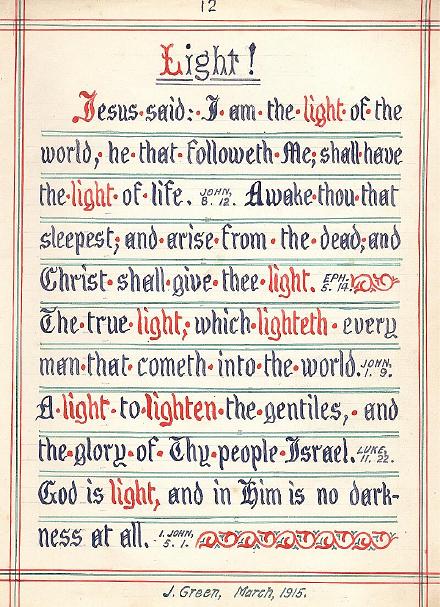 12
Light!
Jesus said: I am the light of the
world, he that followeth Me, shall have
the light of life. JOHN, 8. 12. Awake thou that
sleepest, and arise from the dead, and
Christ shall give thee light. EPH. 5. 14.
The true light, which lighteth every
man that cometh into the world. JOHN, 1. 9.
A light to lighten the gentiles, and
the glory of Thy people Israel. LUKE, 11. 22.
God is light, and in Him is no dark-
ness at all. 1. JOHN, 5. 1.
J. Green, March, 1915.